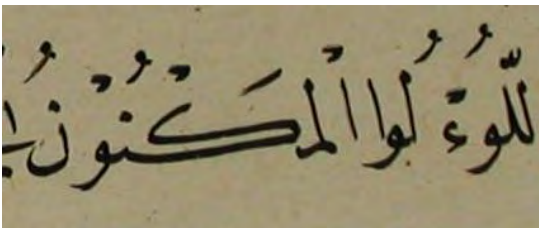 للُّؤُ لُوا الْمَكْنُوْنُ